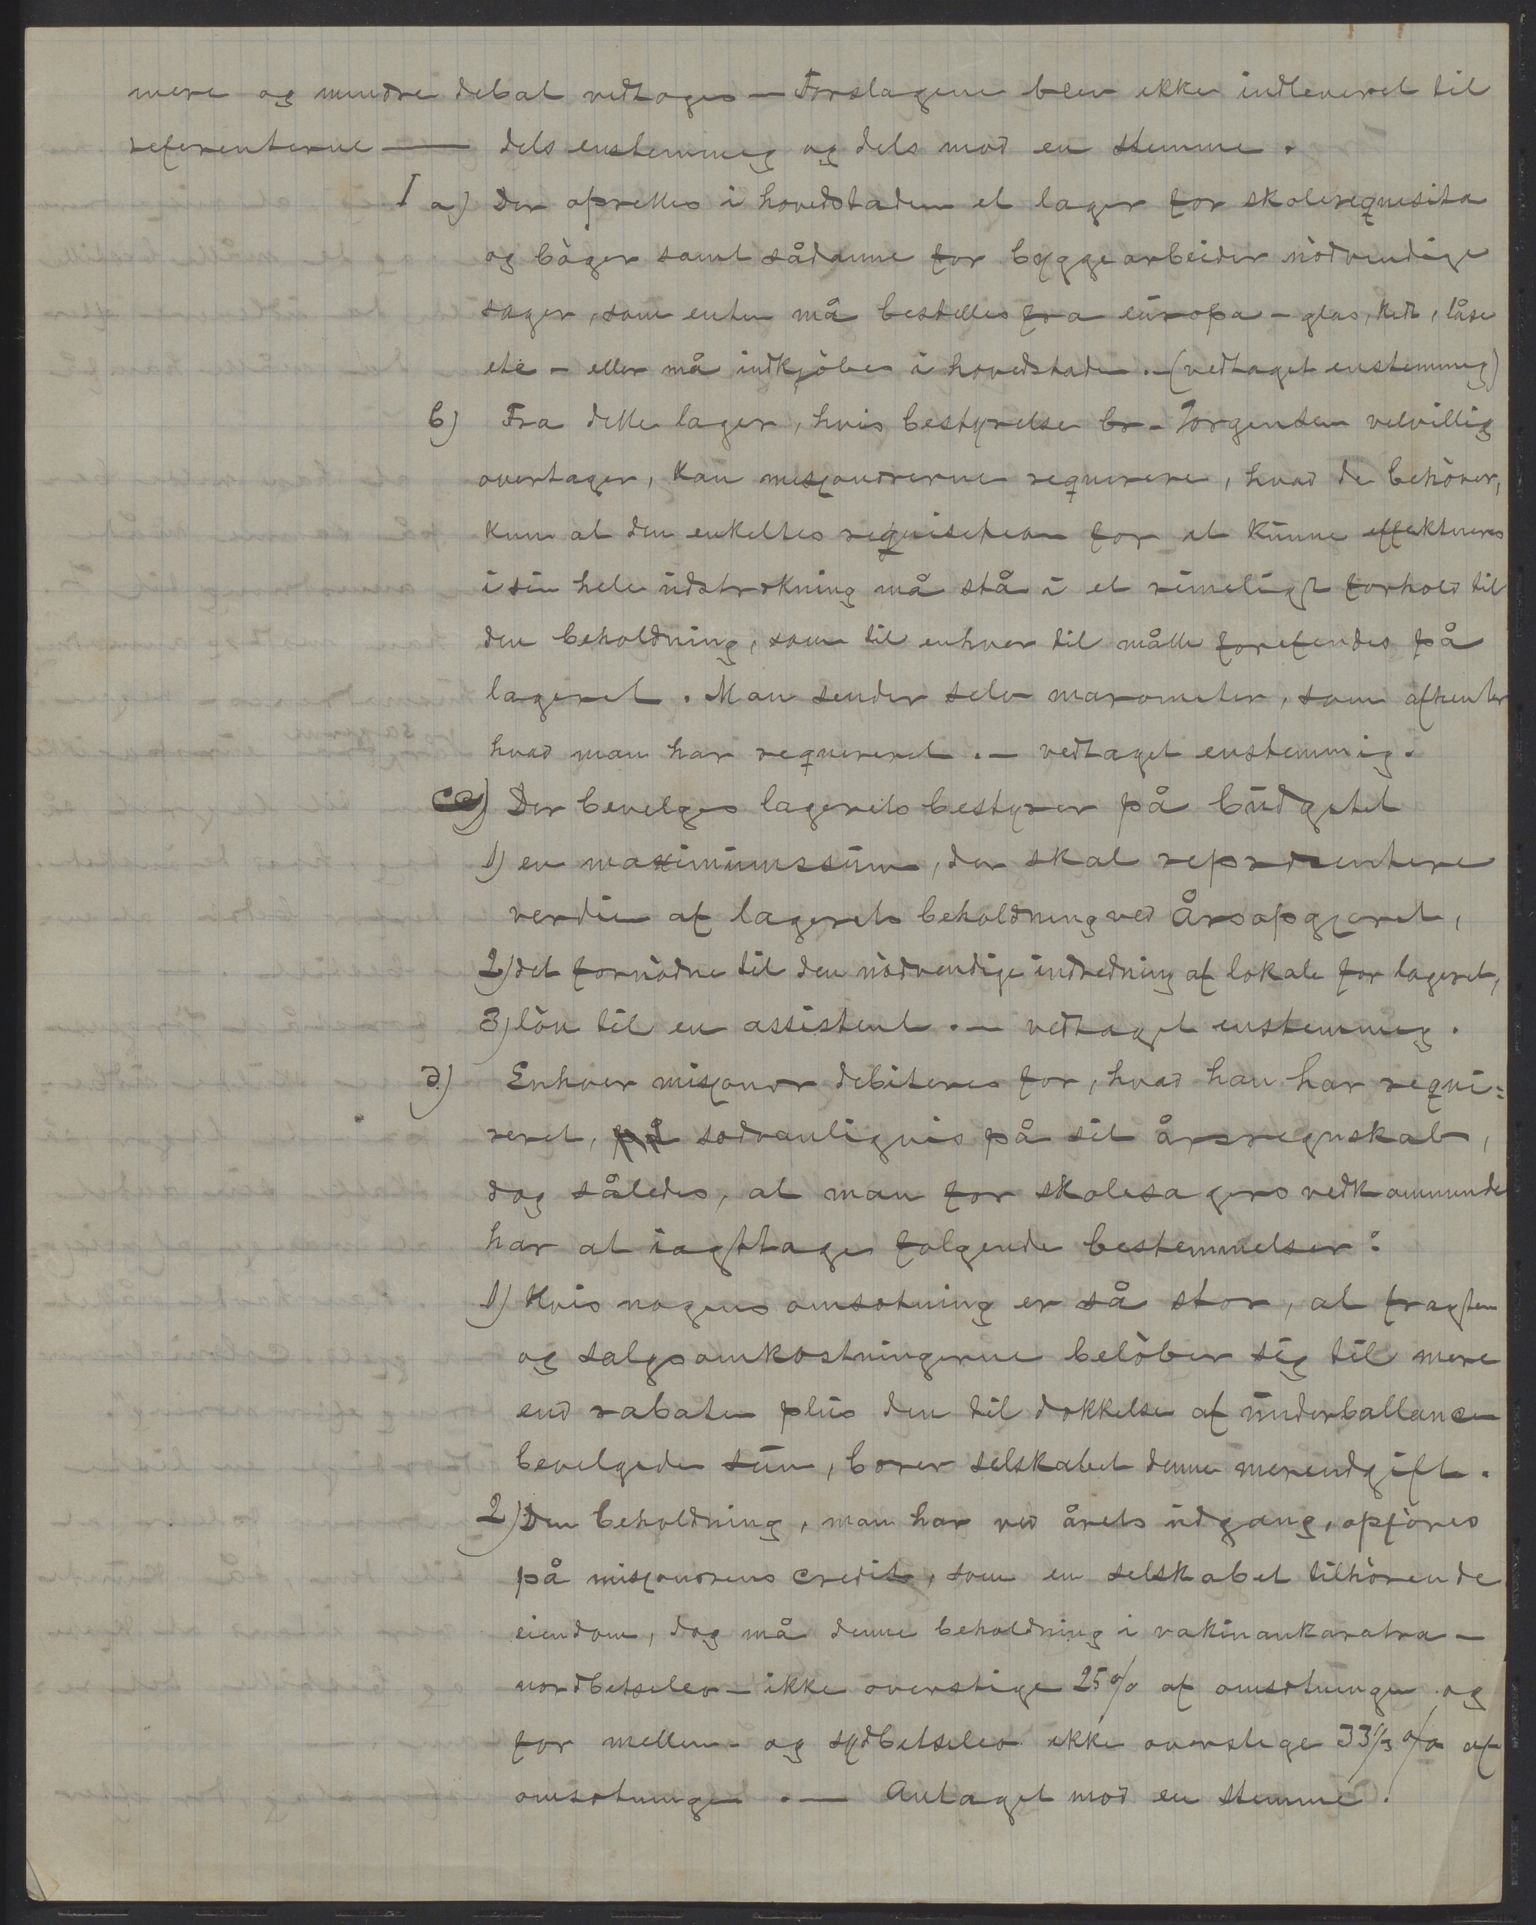 mere og mindre debat vedtoges — Forslagene blev ikke indleveret til
referenterne — dels enstemmig og dels mod en stemme.
I a) Der oprettes i hovedstaden et lager for skolerequisita
og bøger samt sådanne for byggearbeider nødvendige
sager, som enten må bestilles fra europa – glas, kit, låse
etc – eller må indkjøbes i hovedstaden. – (vedtaget enstemmig)
b) Fra dette lager, hvis bestyrelse br. Jørgensen velvillig
overtager, kan misjonærerne requirere, hvad de behøver,
kun at den enkeltes requisition for at kunne effektueres
i sin hele udstrækning må stå i et rimeligt forhold til
den beholdning, som til enhver tid måtte forefindes på
lageret. Man sender selv maromiter, som afhenter
hvad man har requireret. — vedtaget enstemmig.
c) Der bevilges lagerets bestyrer på budgetet
1) en maximumssum, der skal repræsentere
verdien af lagerets beholdning ved årsopgjøret,
2) det fornødne til den nødvendige indredning af lokale for lageret,
3) løn til en assistent. — vedtaget enstemmig.
d) Enhver misjonær debiteres for, hvad han har requi=
reret, sædvanligvis på sit årsregnskab,
dog således, at man for skolesagers vedkommende
har at iagttage følgende bestemmelser:
1) Hvis nogens omsætning er så stor, at fragten
og salgsomkostningerne beløber sig til mere
end rabaten plus den til dækkelse af underballancen
bevilgede sum, bærer selskabet denne merudgift.
2) Den beholdning, man har ved årets udgang, opføres
på misjonærens credit, som en selskabet tilhørende
eiendom, dog må denne beholdning i vakinankaratra –
nordbetsileo – ikke overstige 25% af omsætningen og
for mellem- og sydbetsileo ikke overstige 33⅓ % af
omsætningen. — Antaget mod en stemme.